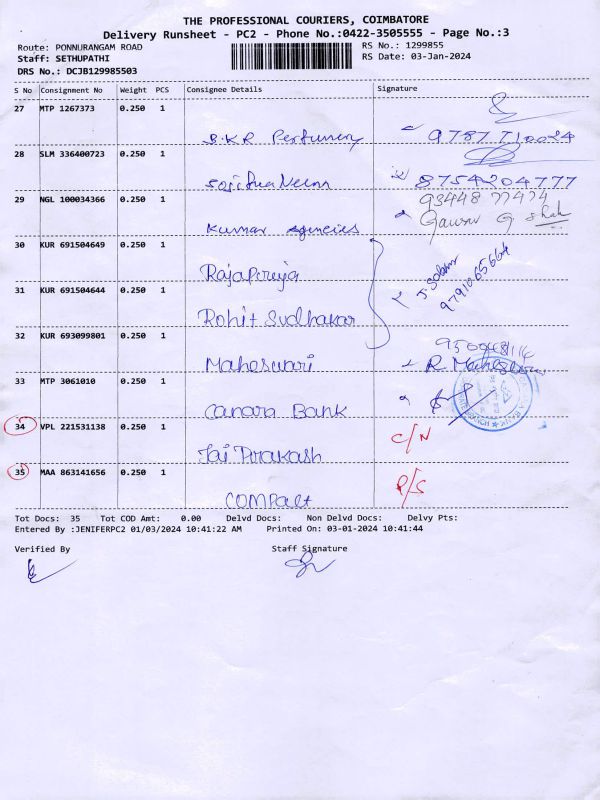 THE PROFESSIONAL COURIERS, COIMBATORE
Delivery Runsheet - PC2 - Phone No.:0422-3505555 - Page No.:3
Route: PONNURANGAM ROAD
RS No.: 1299855
Staff: SETHUPATHI
RS Date: 03-Jan-2024
DRS No.: DCJB129985503
S No Consignment No Weight PCS Consignee Details Signature
27 MTP 1267373 0.250 1
S.K.R Perfumery 9787710024
28 SLM 336400723 0.250 1
8754204777
29 NGL 100034366 0.250 1
93448 77474
Kumar Agencies
30 KUR 691504649 0.250 1
Rajapireya J. Salam
9791065664
31 KUR 691504644 0.250 1
Rohit Sudhakar
32 KUR 693099801 0.250 1
Maheswari R. Maheswari
33 MTP 3061010 0.250 1
Canara Bank
34 VPL 221531138 0.250 1 C/N
Jai Prakash
35 MAA 863141656 0.250 1 P/S
Tot Docs: 35 Tot COD Amt: 0.00 Delvd Docs: Non Delvd Docs: Delvy Pts:
Entered By :JENIFERPC2 01/03/2024 10:41:22 AM Printed On: 03-01-2024 10:41:44
Verified By Staff Signature